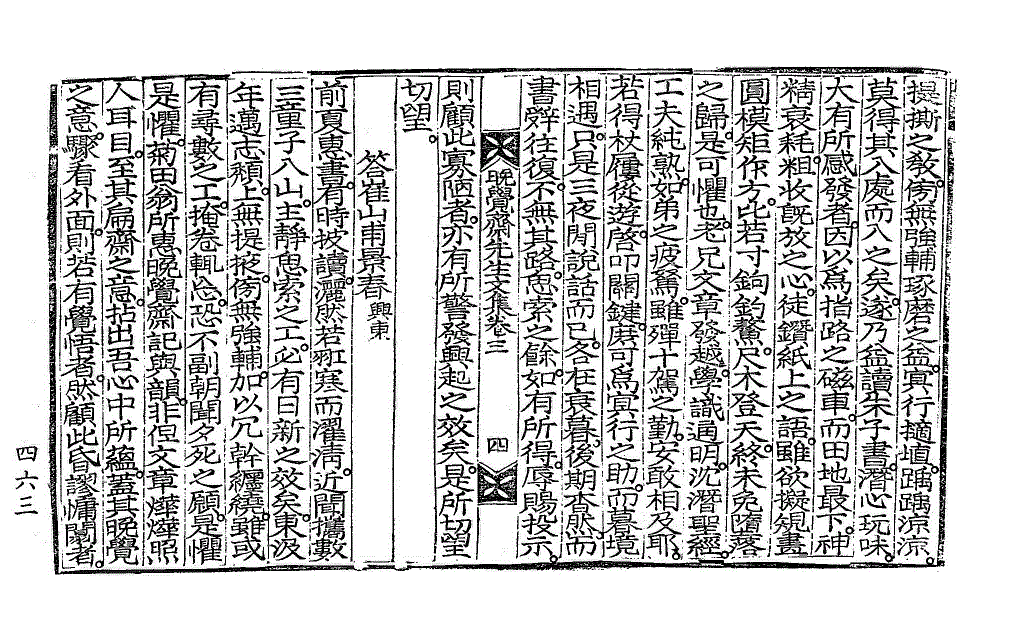 提撕之敎傍無強輔琢磨之益冥行擿埴踽踽凉凉
莫得其入處而入之矣遂乃益讀朱子書潛心玩味
大有所感發者因以爲指路之磁車而田地最下神
精衰耗粗收旣放之心徒鑽紙上之語雖欲擬規畫
圓模矩作方比若寸鉤釣鰲尺木登天終未免墮落
之歸是可懼也老兄文章發越學識通明沉潛聖經
工夫純熟如弟之疲駑雖殫十駕之勤安敢相及耶
若得杖屨從遊啓叩關鍵庶可爲冥行之助而暮境
相遇只是三夜閒說話而已各在衰暮後期杳然而
書辭往復不無其路思索之餘如有所得辱賜投示
晩覺齋先生文集卷三
四
則顧此寡陋者亦有所警發興起之效矣是所切望
切望
答崔山甫景春興東
前夏惠書有時披讀灑然若執寒而濯淸近間攜數
三童子入山主靜思索之工必有日新之效矣東汲
年邁志頹上無提掖傍無強輔加以冗幹纏繞雖或
有尋數之工掩卷輒忘恐不副朝聞夕死之願是懼
是懼菊田翁所惠晩覺齋記與韻非但文章燁燁照
人耳目至其扁齋之意拈出吾心中所蘊蓋其晩覺
之意驟看外面則若有覺悟者然顧此昏謬慵闒者
四六三